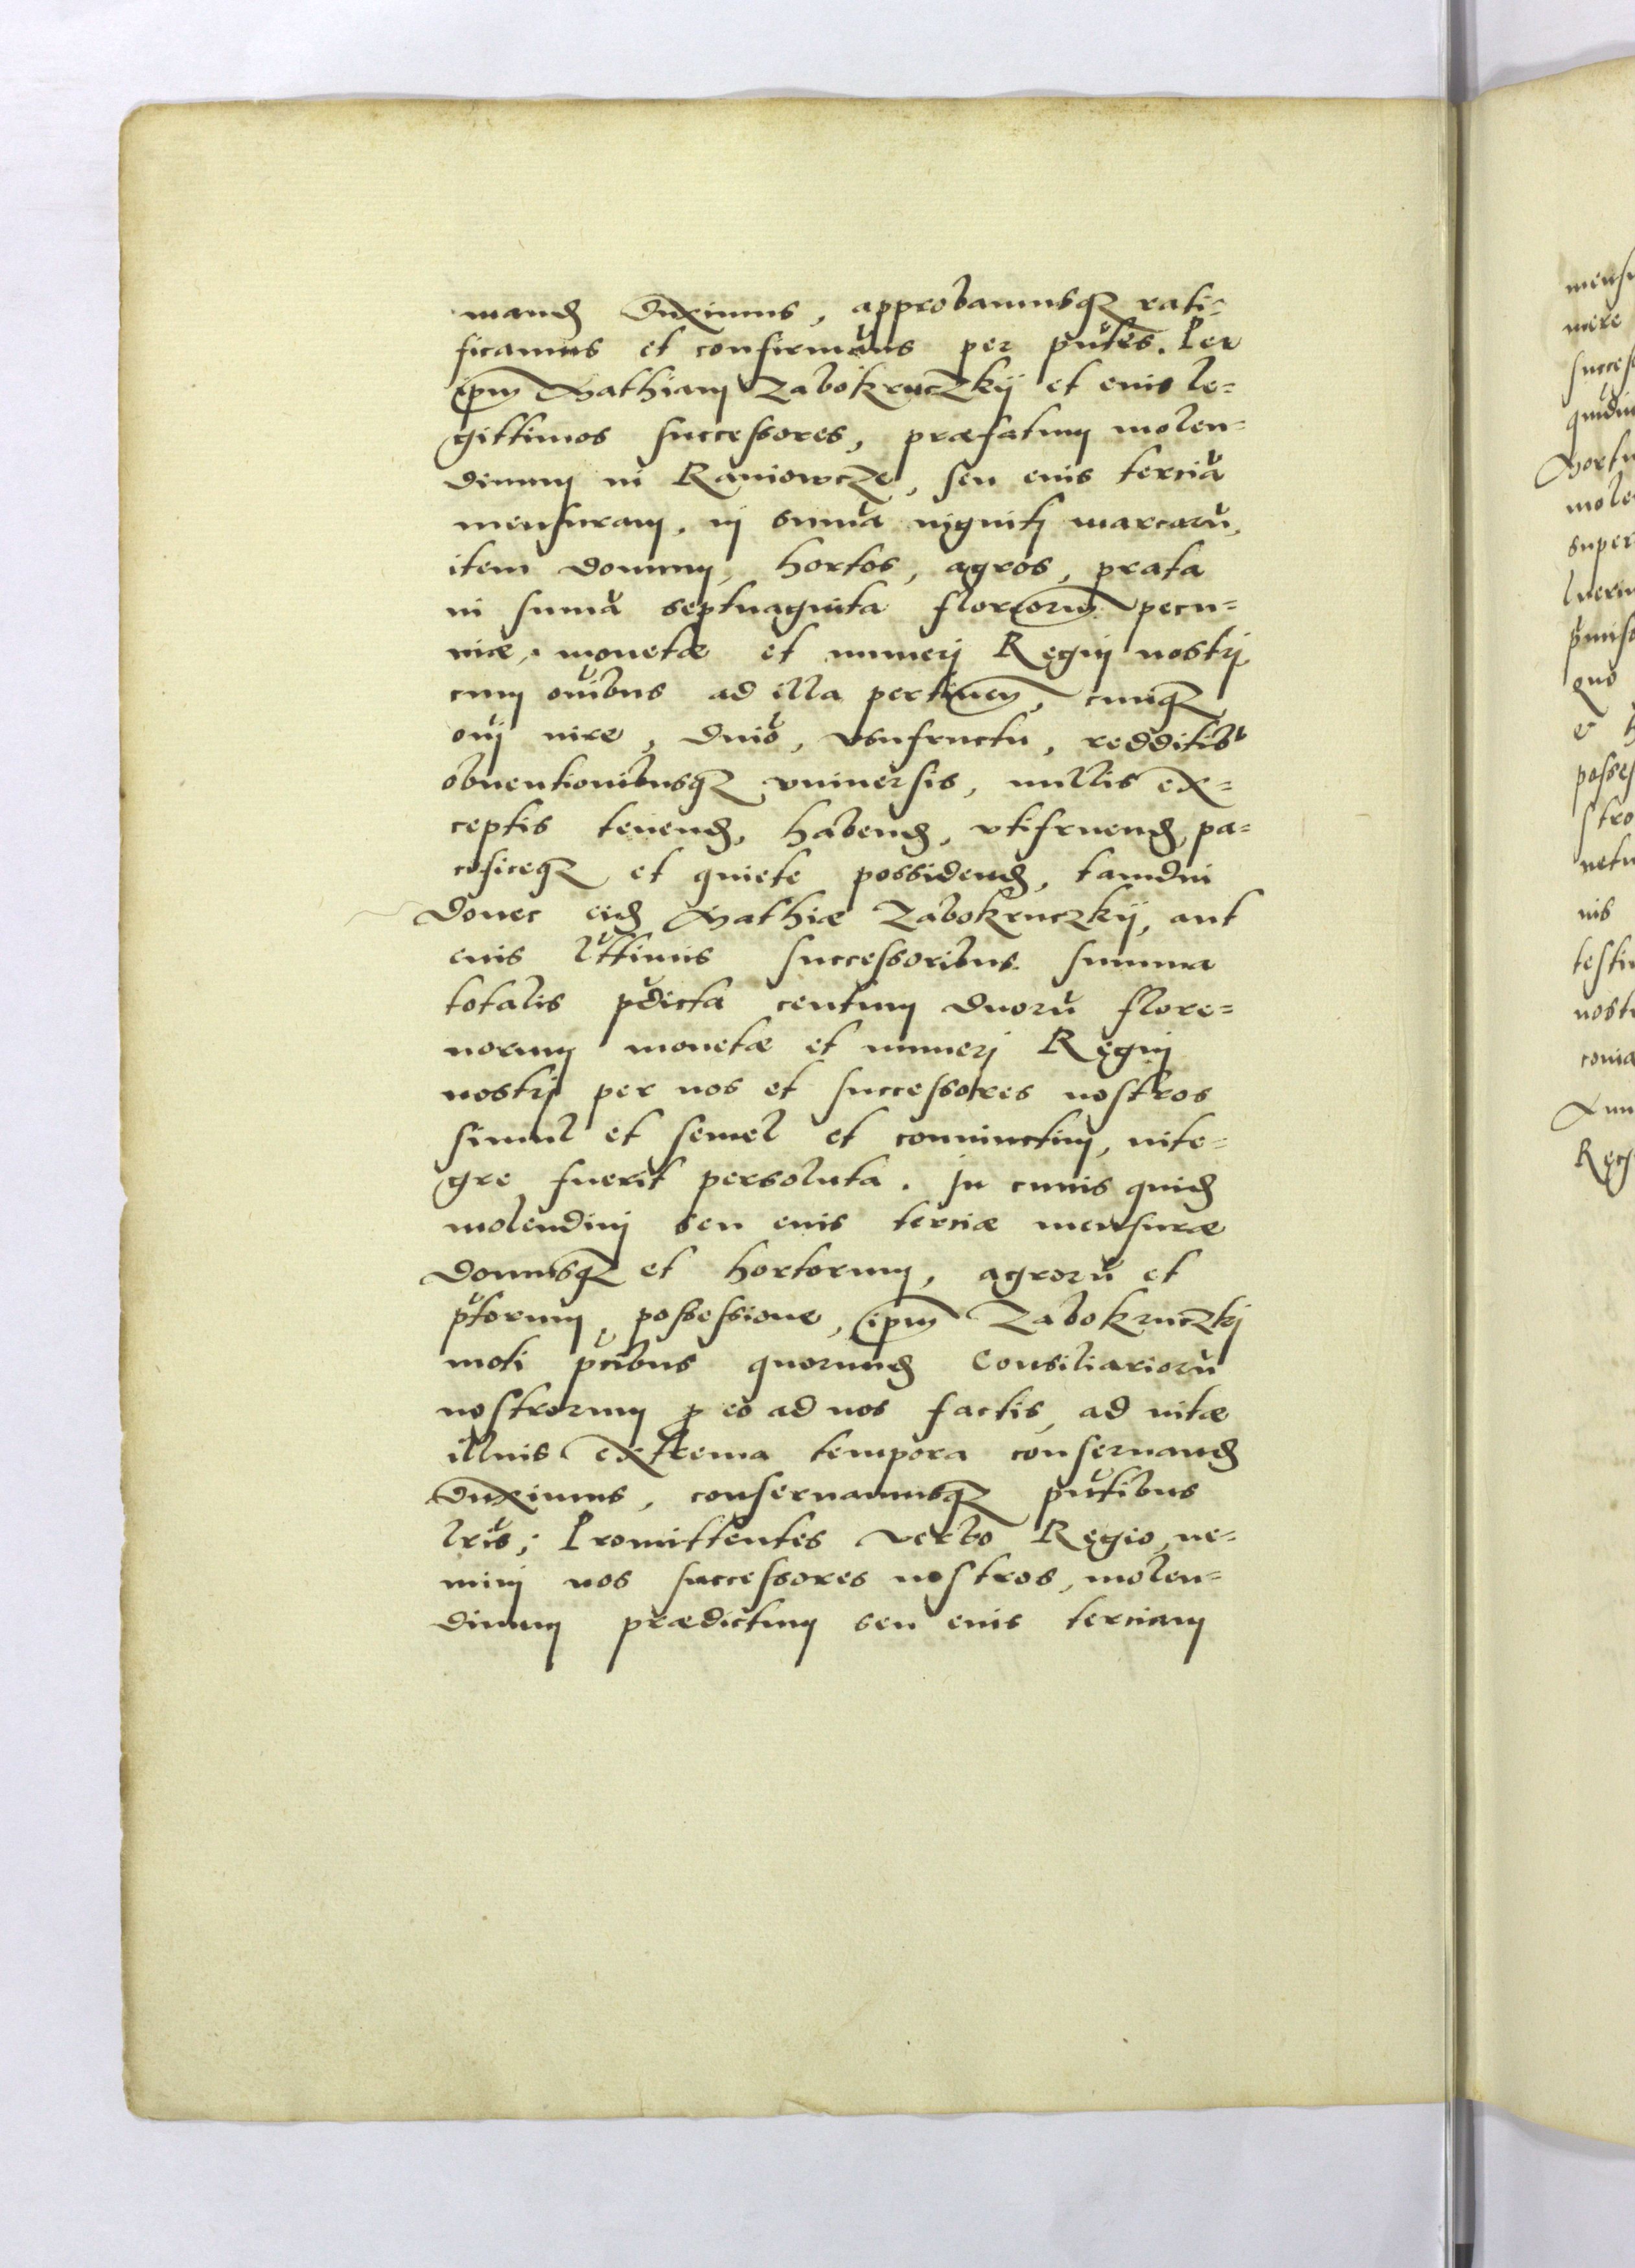 mand duximus, approbamusq rati=
ficamus et confirmāus per pñtes. Per
ipm Mathiam Zabokruczkij et eius le=
gittimos successores, præfatum molen=
dinum in Raniowcze, seu eius terciā
mensuram, in summa viginti marcarū,
item domum, hortos, agros, prata
in suma septuaginta florenorum pecu=
niæ, monetæ et numeri Regni nostri,
cum oibus ad illa pertinen, cumq
oi iure, dnio, vsufructu, redditib
obuentionibusq vniuersis, nullis ex=
ceptis tenend, habend, vtifruend, pa=
cificeq et quiete possidend, tamdiu
donec eid Mathiæ Zabokruczkij, aut
eius lttimis successoribus summa
totalis pdicta centum duorū flore=
norum monetæ et numeri Regni
nostri per nos et successores nostros
simul et semel et coniunctim, inte=
gre fuerit persoluta. In cuius quid
molendini seu eius terciæ mensuræ
domusq et hortorum, agrorū et
ptorum, possessione, ipm Zabokruczkj
moti pcibus quorund Consiliariorū
nostrorum p eo ad nos factis, ad vitæ
illius extrema tempora conseruand
duximus, conseruamusq pñtibus
lris; Promittentes verbo Regio, ne=
mini nos successores nostros, molen=
dinum prædictum seu eius terciam